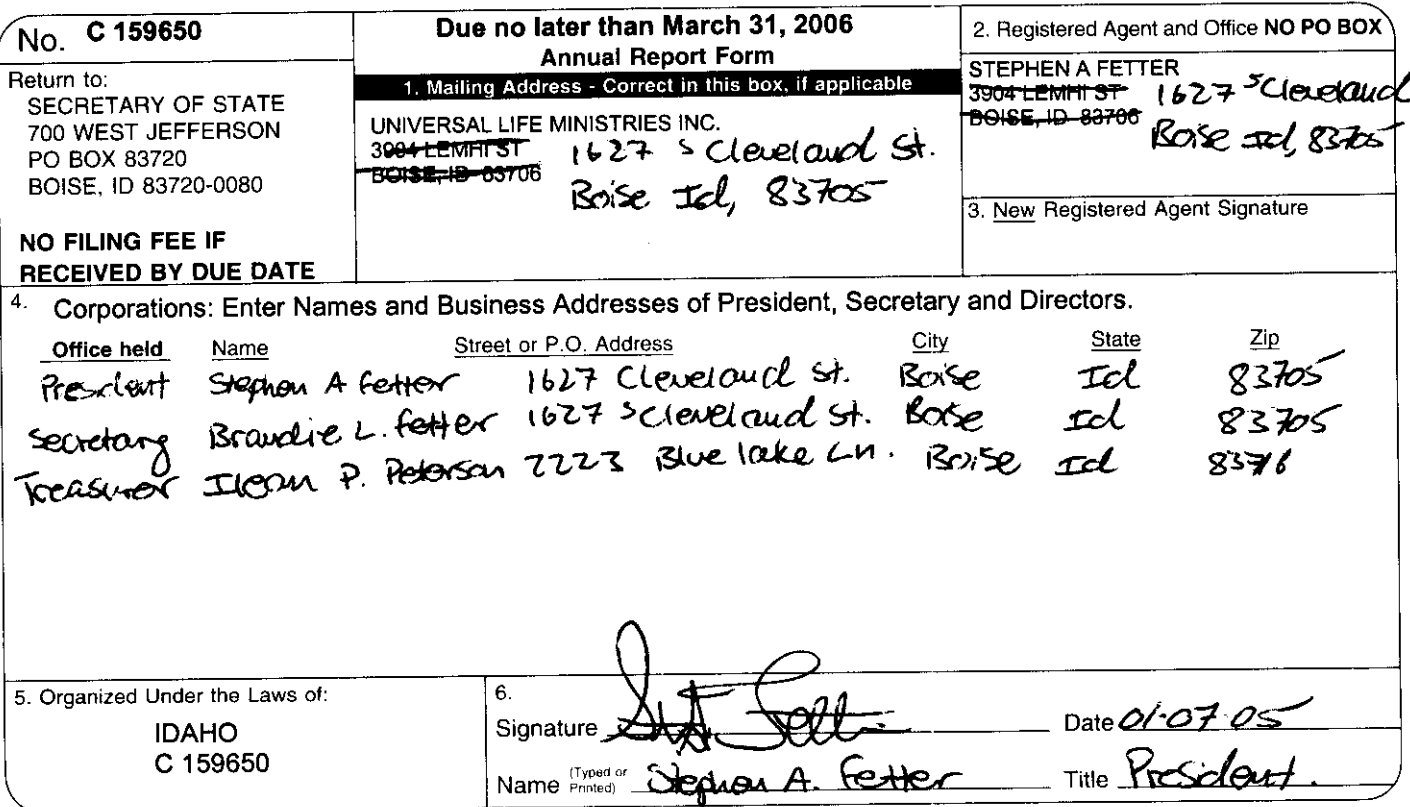 No. C 159650
Return to:
SECRETARY OF STATE
700 WEST JEFFERSON
PO BOX 83720
BOISE, ID 83720-0080
NO FILING FEE IF
RECEIVED BY DUE DATE
Due no later than March 31, 2006
Annual Report Form
1. Mailing Address - Correct in this box, if applicable
UNIVERSAL LIFE MINISTRIES INC.
3904 LEMHI ST
BOISE, ID 83706
1627 S Cleveland St.
Boise Id, 83705
2. Registered Agent and Office NO PO BOX
STEPHEN A FETTER
3904 LEMHI ST
BOISE, ID 83706
1627 S Cleveland
Boise Id, 83705
3. New Registered Agent Signature
4. Corporations: Enter Names and Business Addresses of President, Secretary and Directors.
Office held Name Street or P.O. Address City State Zip
President Stephen A Fetter 1627 Cleveland St. Boise Id 83705
Secretary Brandie L. Fetter 1627 S Cleveland St. Boise Id 83705
Treasurer P. Peterson 2223 Blue lake Ln. Boise Id 83716
5. Organized Under the Laws of:
IDAHO
C 159650
6.
Signature
Date 01-07-05
Name (Typed or Printed) Stephen A. Fetter
Title President.